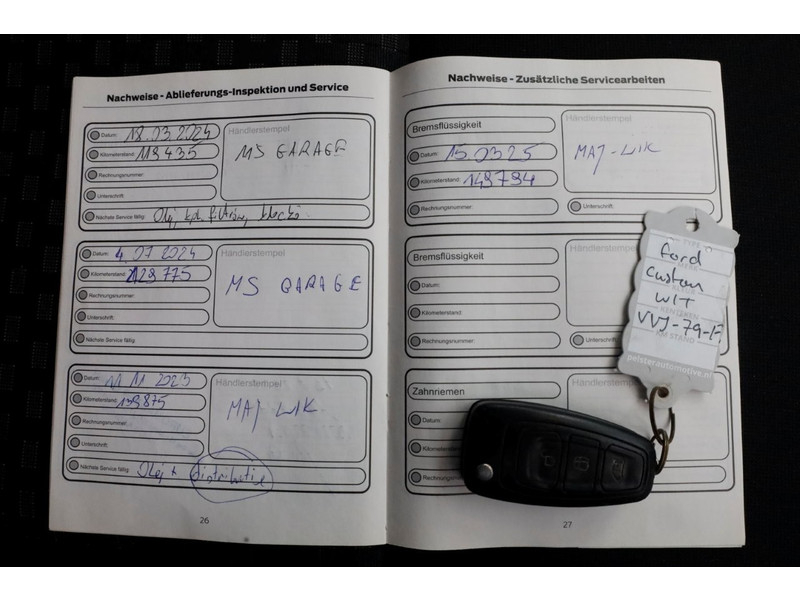 Nachweise - Ablieferungs-Inspektion und Service
Datum: 18.03.2024
Händlerstempel
Kilometerstand: 118435
MS GARAGE
Rechnungsnummer:
Unterschrift:
Nächste Service fällig: Olej, kpl.
Datum: 4 07 2024
Händlerstempel
Kilometerstand: 128775
MS GARAGE
Rechnungsnummer:
Unterschrift:
Nächste Service fällig:
Datum: 11 11
Händlerstempel
Kilometerstand:
MAJ WIK
Rechnungsnummer:
Unterschrift:
Nächste Service fällig: Olej +
26
Nachweise - Zusätzliche Servicearbeiten
Bremsflüssigkeit
Händlerstempel
Datum: 15.03 25
MAJ-WIK
Kilometerstand: 148794
Rechnungsnummer:
Unterschrift:
Bremsflüssigkeit
Datum:
Kilometerstand:
Rechnungsnummer:
Unterschrift:
Zahnriemen
Datum:
27
Ford
Custom
WIT
KENTEKEN
VVJ-79-
KM STAND
pelsterautomotive.nl